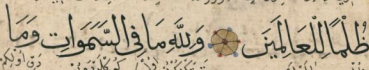 ظُلْمًا لِلْعَالَمِينَ وَلِلَّهِ مَا فِي السَّمَوَاتِ وَمَا